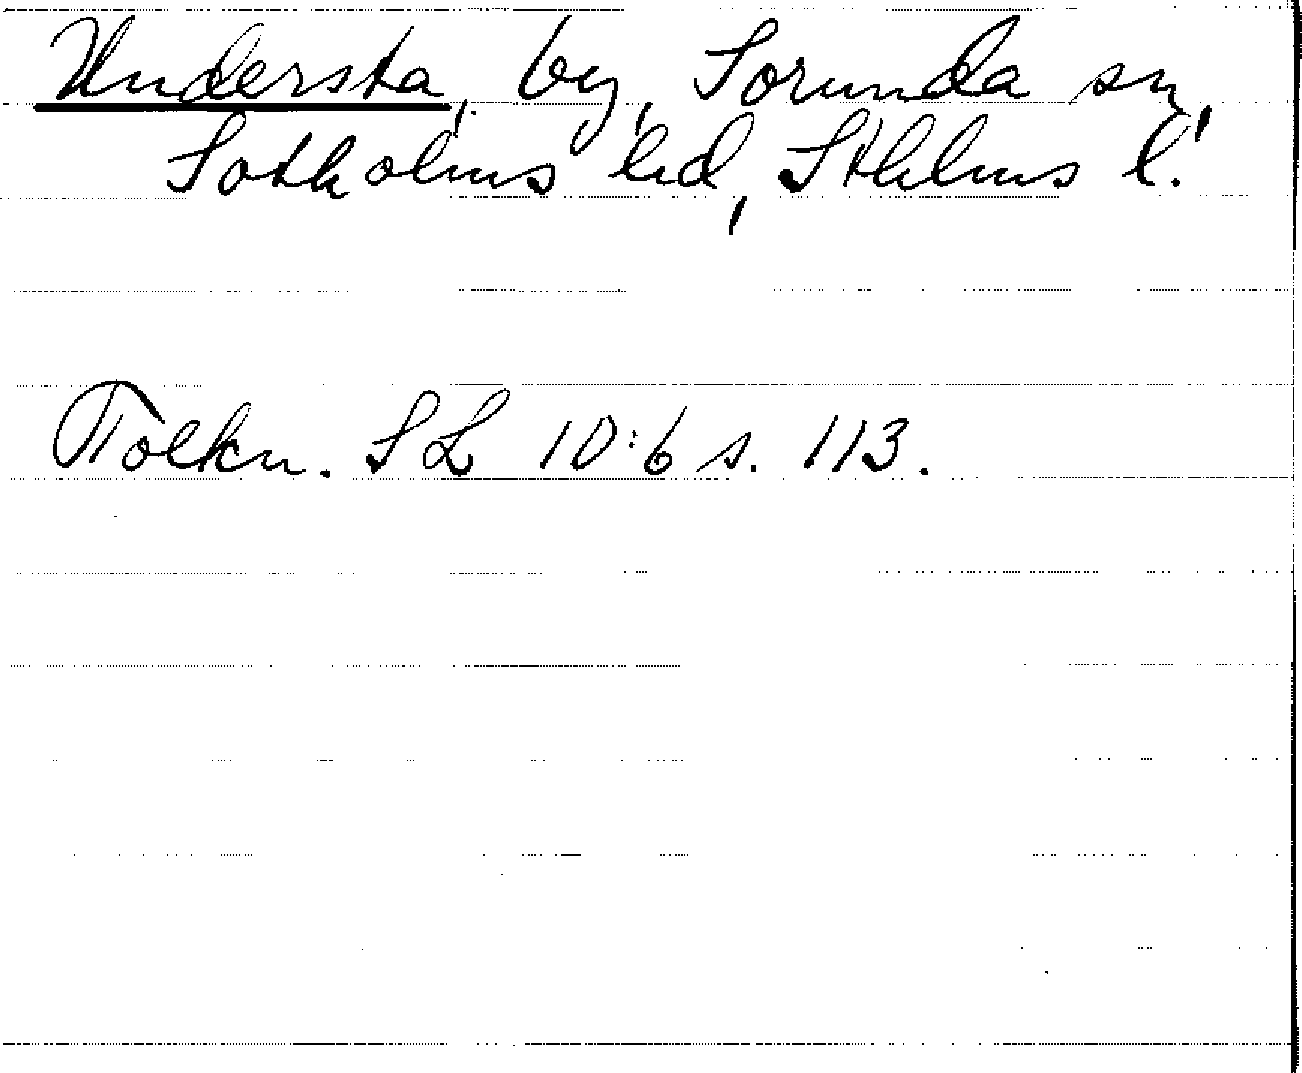 Understa, by, Sorunda sn,
Sotholms hd, Sthlms l.
Tolkn. SL 10:6 s. 113.